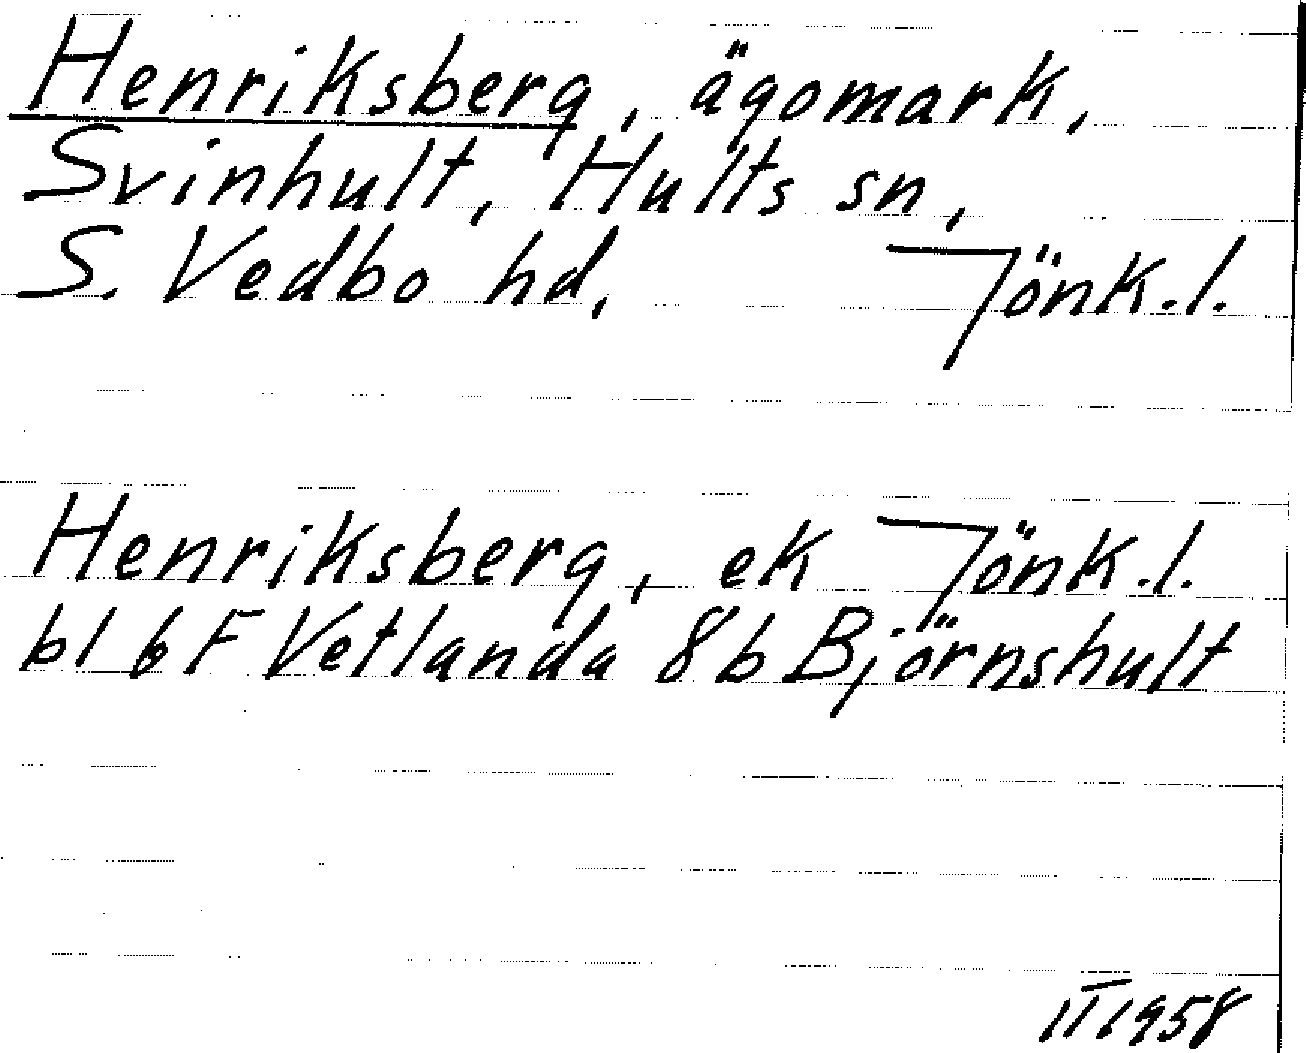 Henriksberg, ägomark,
Svinhult, Hults sn,
S. Vedbo hd, Jönk.l.
Henriksberg, ek Jönk.l.
bl 6 F Vetlanda 8b Björnshult
1958